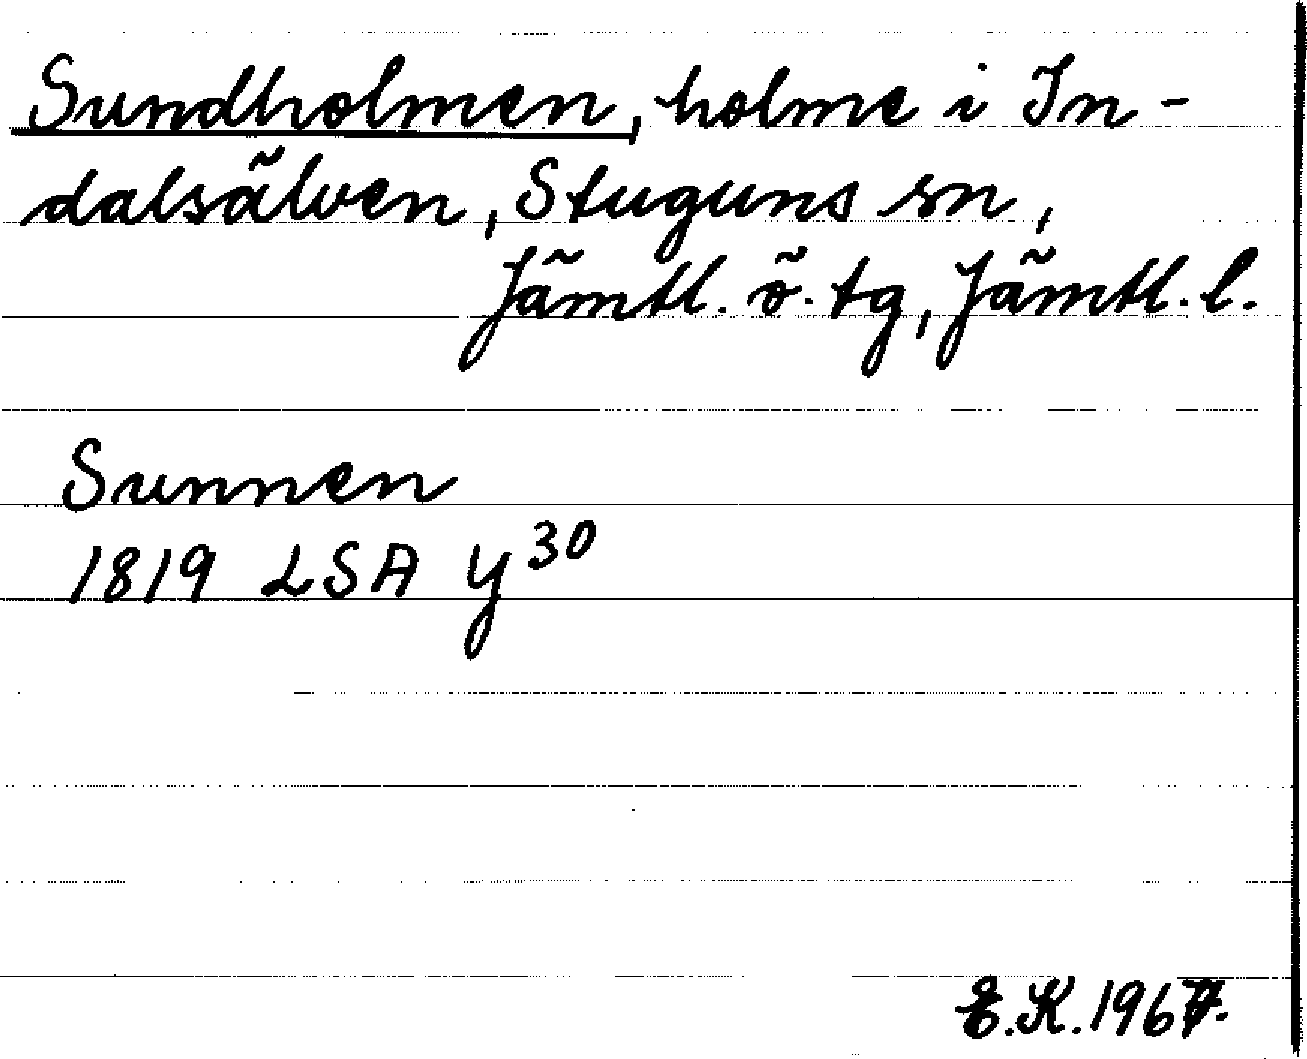 Sundholmen, holme i In-
dalsälven, Stuguns sn,
Jämtl. ö. tg, Jämtl. l.
Sunnen
1819 LSA Y30
E.K. 1967.